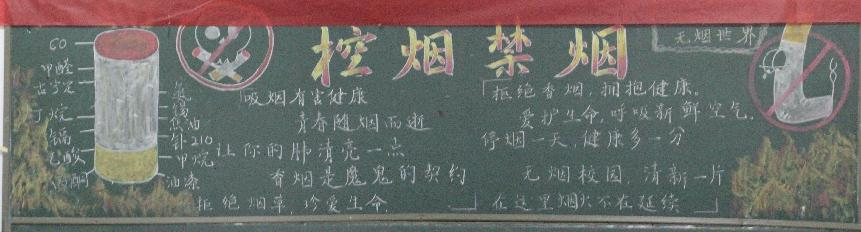 控烟禁烟
无烟世界
CO
甲醛
尼古丁
丁烷
镉
乙酸
丙酮
氨
焦油
钋210
甲烷
油漆
「吸烟有害健康
青春随烟而逝
让你的肺清亮一点
香烟是魔鬼的契约
拒绝烟草,珍爱生命.」
「拒绝香烟,拥抱健康.
爱护生命,呼吸新鲜空气.
停烟一天,健康多一分
无烟校园,清新一片
在这里烟火不在延续」